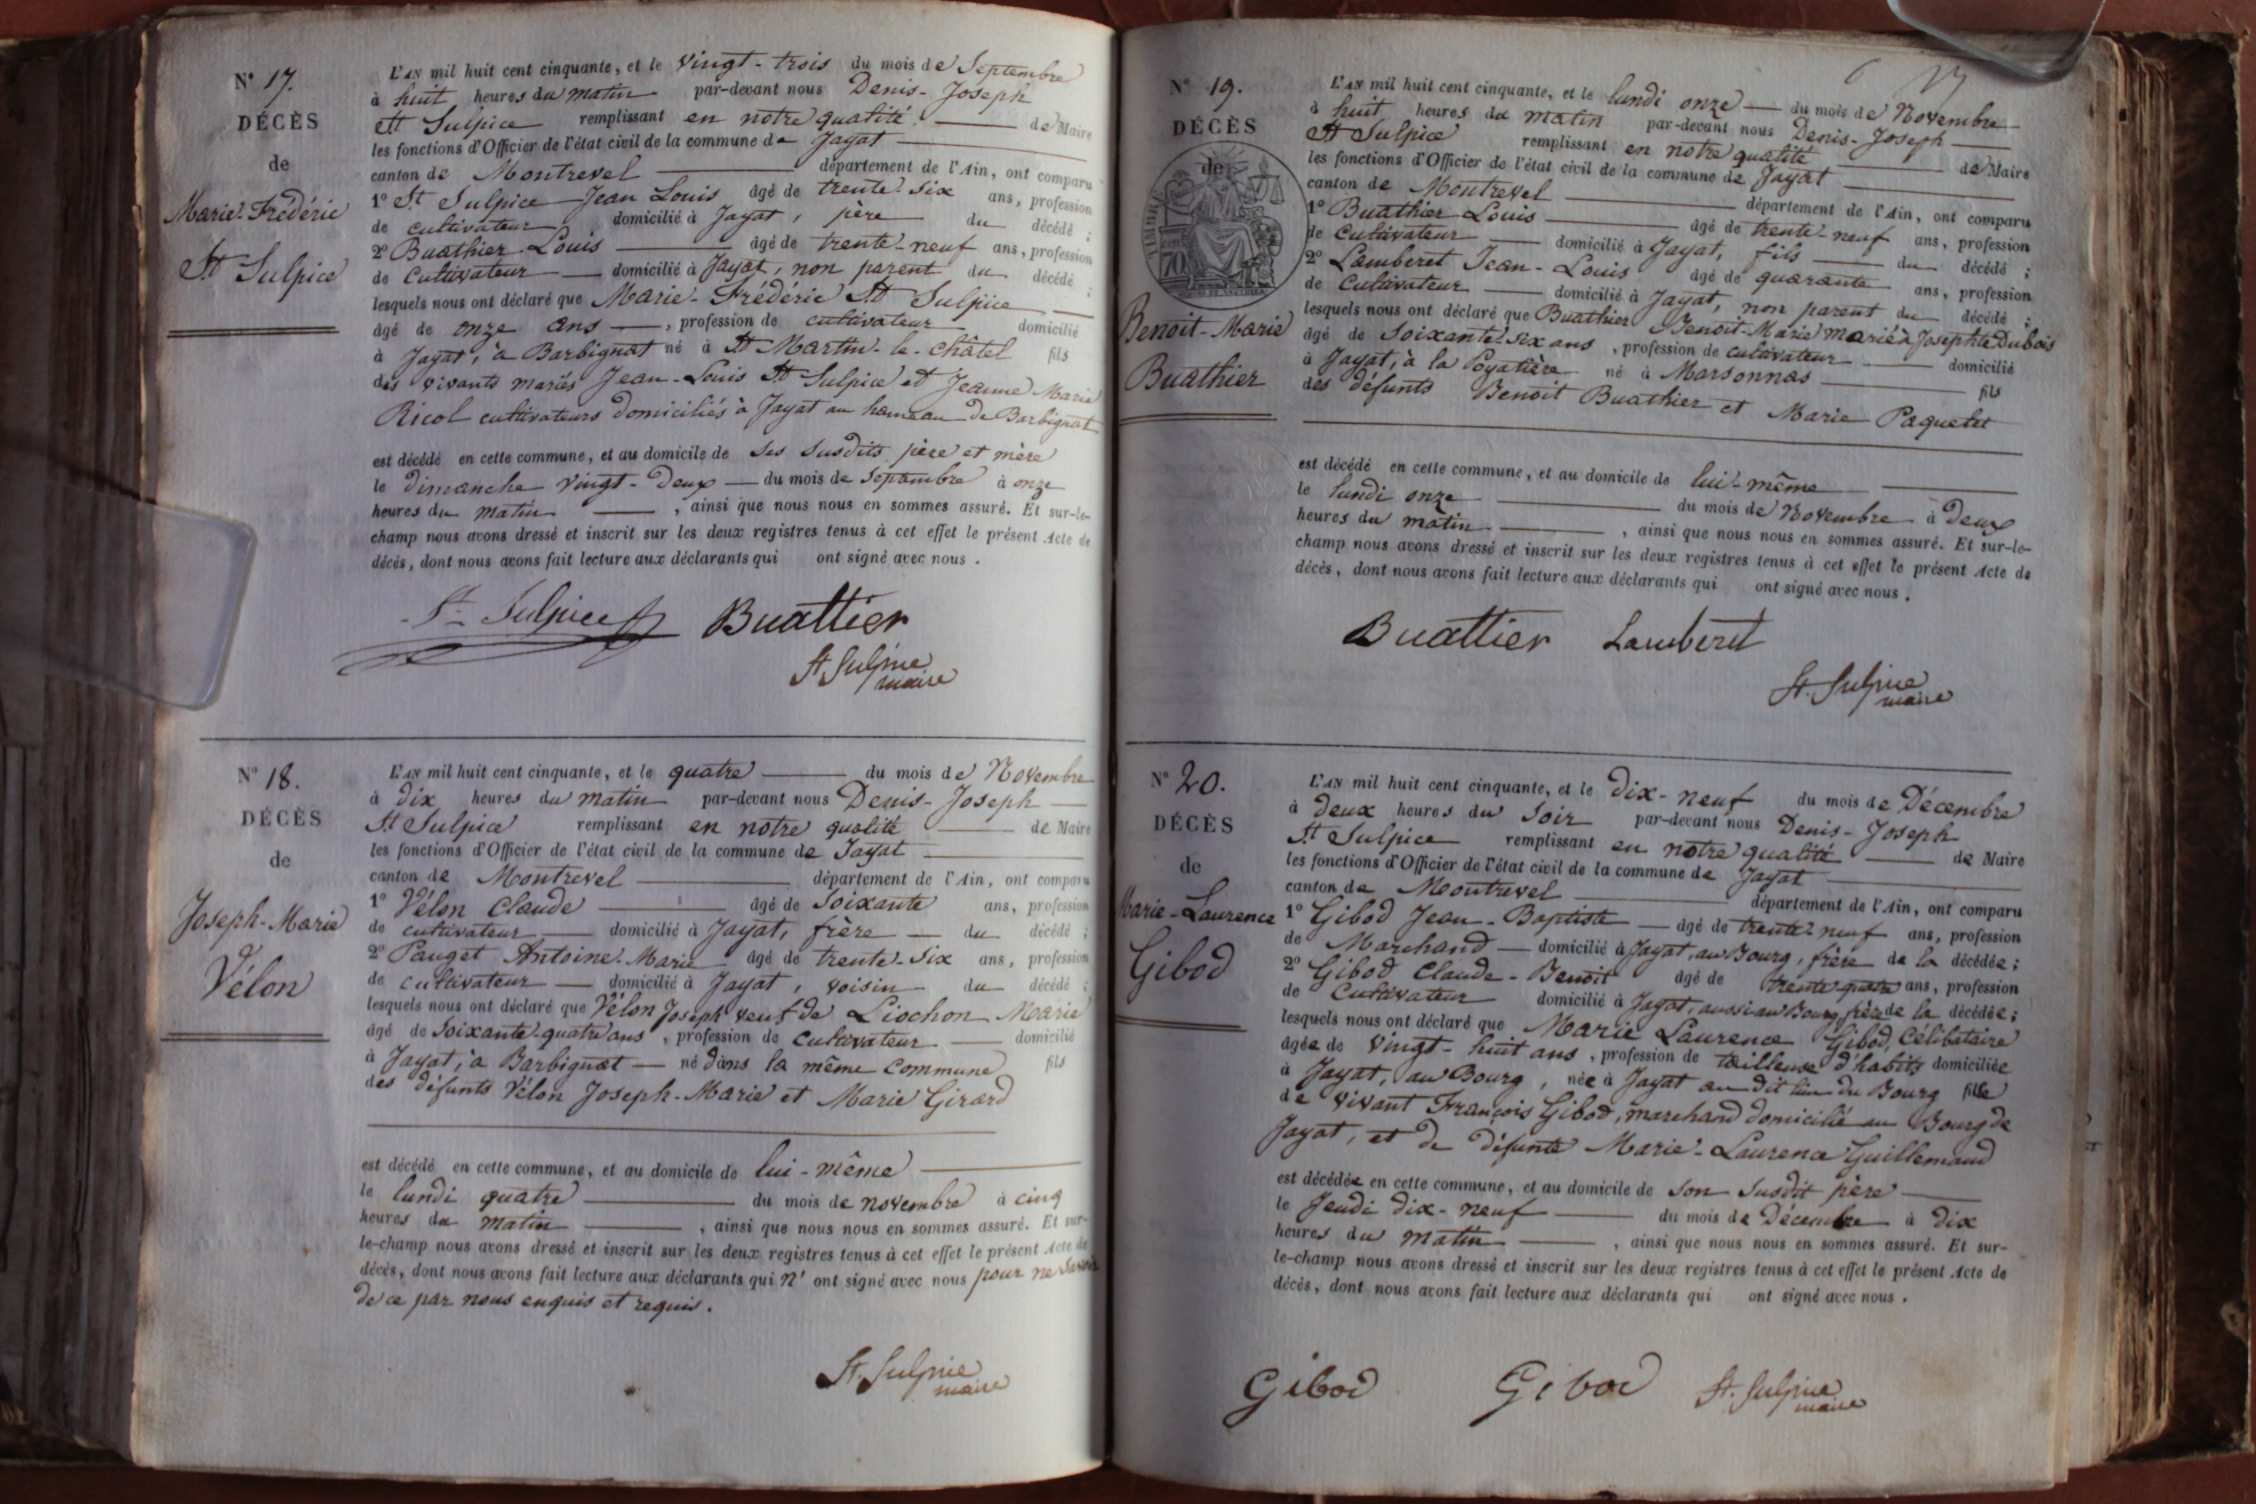 N° 17.
DÉCÈS
de
Marie-Frédéric
St Sulpice
L'AN mil huit cent cinquante, et le vingt-trois du mois de Septembre
à huit heures du matin par-devant nous Denis-Joseph
St Sulpice remplissant en notre qualité de Maire
les fonctions d'Officier de l'état civil de la commune de Jayat
canton de Montrevel département de l'Ain, ont comparu
1° St Sulpice Jean Louis âgé de trente-six ans, profession
de cultivateur, domicilié à Jayat, père du décédé ;
2° Buathier Louis âgé de trente-neuf ans, profession
de cultivateur domicilié à Jayat, non parent du décédé ;
lesquels nous ont déclaré que Marie-Frédéric St Sulpice
âgé de onze ans, profession de cultivateur domicilié
à Jayat, à Barbignat né à St Martin-le-Châtel fils
des vivants mariés Jean-Louis St Sulpice et Jeanne Marie
Ricol cultivateurs domiciliés à Jayat au hameau de Barbignat
est décédé en cette commune, et au domicile de ses susdits père et mère
le dimanche vingt-deux du mois de Septembre à onze
heures du matin, ainsi que nous nous en sommes assuré. Et sur-le-
champ nous avons dressé et inscrit sur les deux registres tenus à cet effet le présent Acte de
décès, dont nous avons fait lecture aux déclarants qui ont signé avec nous.
St Sulpice Buattier
St Sulpice
maire
N° 18.
DÉCÈS
de
Joseph-Marie
Vélon
L'AN mil huit cent cinquante, et le quatre du mois de Novembre
à dix heures du matin par-devant nous Denis-Joseph
St Sulpice remplissant en notre qualité de Maire
les fonctions d'Officier de l'état civil de la commune de Jayat
canton de Montrevel département de l'Ain, ont comparu
1° Vélon Claude âgé de soixante ans, profession
de cultivateur domicilié à Jayat, frère du décédé ;
2° Pauget Antoine-Marie âgé de trente-six ans, profession
de cultivateur domicilié à Jayat, voisin du décédé ;
lesquels nous ont déclaré que Vélon Joseph veuf de Liochon Marie
âgé de soixante-quatre ans, profession de cultivateur domicilié
à Jayat, à Barbignat né dans la même commune fils
des défunts Vélon Joseph-Marie et Marie Girard
est décédé en cette commune, et au domicile de lui-même
le lundi quatre du mois de novembre à cinq
heures du matin, ainsi que nous nous en sommes assuré. Et sur-
le-champ nous avons dressé et inscrit sur les deux registres tenus à cet effet le présent Acte de
décès, dont nous avons fait lecture aux déclarants qui n'ont signé avec nous pour ne savoir
de ce par nous enquis et requis.
St Sulpice
maire
N° 19.
DÉCÈS
de
Benoit-Marie
Buathier
L'AN mil huit cent cinquante, et le lundi onze du mois de Novembre
à huit heures du matin par-devant nous Denis-Joseph
St Sulpice remplissant en notre qualité de Maire
les fonctions d'Officier de l'état civil de la commune de Jayat
canton de Montrevel département de l'Ain, ont comparu
1° Buathier Louis âgé de trente-neuf ans, profession
de cultivateur domicilié à Jayat, fils du décédé ;
2° Lamberet Jean-Louis âgé de quarante ans, profession
de cultivateur domicilié à Jayat, non parent du décédé ;
lesquels nous ont déclaré que Buathier Benoit-Marie marié à Josephte Dubois
âgé de soixante-six ans, profession de cultivateur domicilié
à Jayat, à la Poyatière né à Marsonnas fils
des défunts Benoit Buathier et Marie Paquetet
est décédé en cette commune, et au domicile de lui-même
le lundi onze du mois de Novembre à deux
heures du matin, ainsi que nous nous en sommes assuré. Et sur-le-
champ nous avons dressé et inscrit sur les deux registres tenus à cet effet le présent Acte de
décès, dont nous avons fait lecture aux déclarants qui ont signé avec nous.
Buattier Lamberet
St Sulpice
maire
N° 20.
DÉCÈS
de
Marie-Laurence
Gibod
L'AN mil huit cent cinquante, et le dix-neuf du mois de Décembre
à deux heures du soir par-devant nous Denis-Joseph
St Sulpice remplissant en notre qualité de Maire
les fonctions d'Officier de l'état civil de la commune de Jayat
canton de Montrevel département de l'Ain, ont comparu
1° Gibod Jean-Baptiste âgé de trente-neuf ans, profession
de Marchand domicilié à Jayat, au Bourg, frère de la décédée ;
2° Gibod Claude-Benoit âgé de trente quatre ans, profession
de cultivateur domicilié à Jayat, aussi au Bourg, frère de la décédée ;
lesquels nous ont déclaré que Marie Laurence Gibod, célibataire
âgée de vingt-huit ans, profession de tailleuse d'habits domiciliée
à Jayat, au Bourg, née à Jayat au dit lieu du Bourg fille
de vivant François Gibod, marchand domicilié au Bourg de
Jayat, et de défunte Marie-Laurence Guillemaud
est décédée en cette commune, et au domicile de son susdit père
le Jeudi dix-neuf du mois de Décembre à dix
heures du matin, ainsi que nous nous en sommes assuré. Et sur-
le-champ nous avons dressé et inscrit sur les deux registres tenus à cet effet le présent Acte de
décès, dont nous avons fait lecture aux déclarants qui ont signé avec nous.
Gibod Gibod St Sulpice
maire